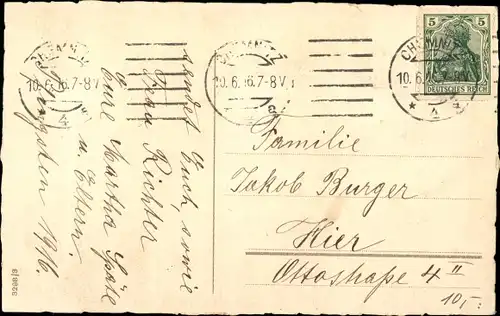 sendet Euch, sowie
Frau Richter
Eure Martha Späte
u. Eltern.
Pfingsten 1916.
CHEMNITZ
10.6.16.7-8V.
CHEMNITZ
10.6.16.7-8V.
CHEMNITZ
10.6.16.7-8V.
5 5
DEUTSCHES REICH
Familie
Jakob Burger
Hier
Ottostraße 4 II
10,-
3298/3